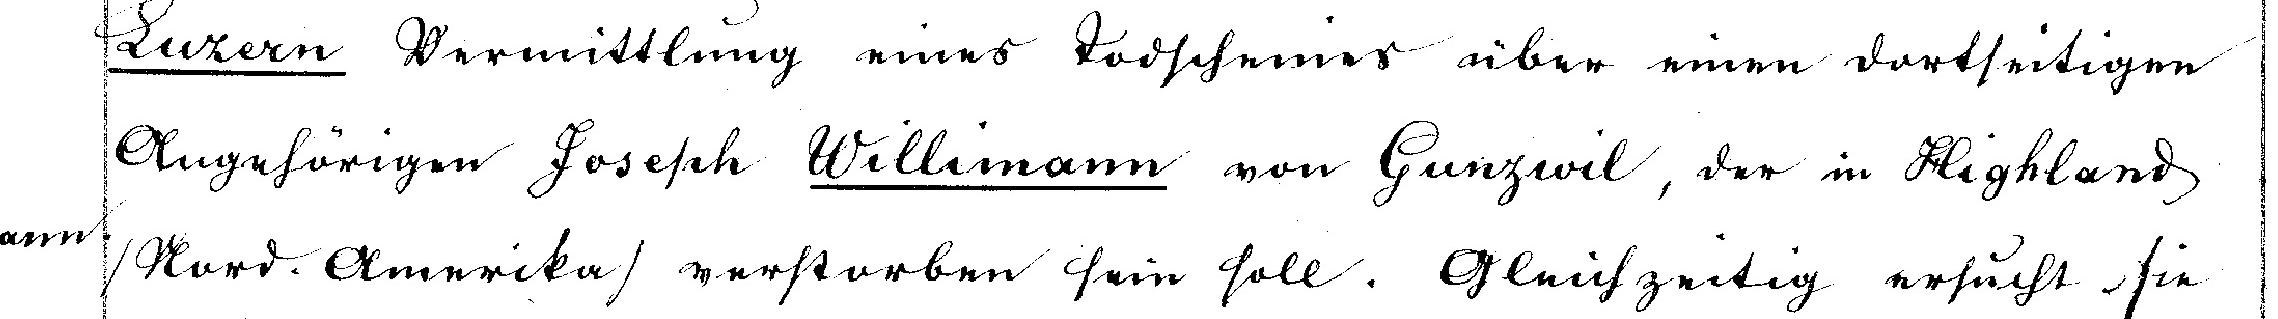 Luzern Vermittlung eines Todscheines über einen dortseitigen
Angehörigen Joseph Willimann von Gunzwil, der in Highland
/Nord-Amerika/ verstorben sein soll. Gleichzeitig ersucht sie